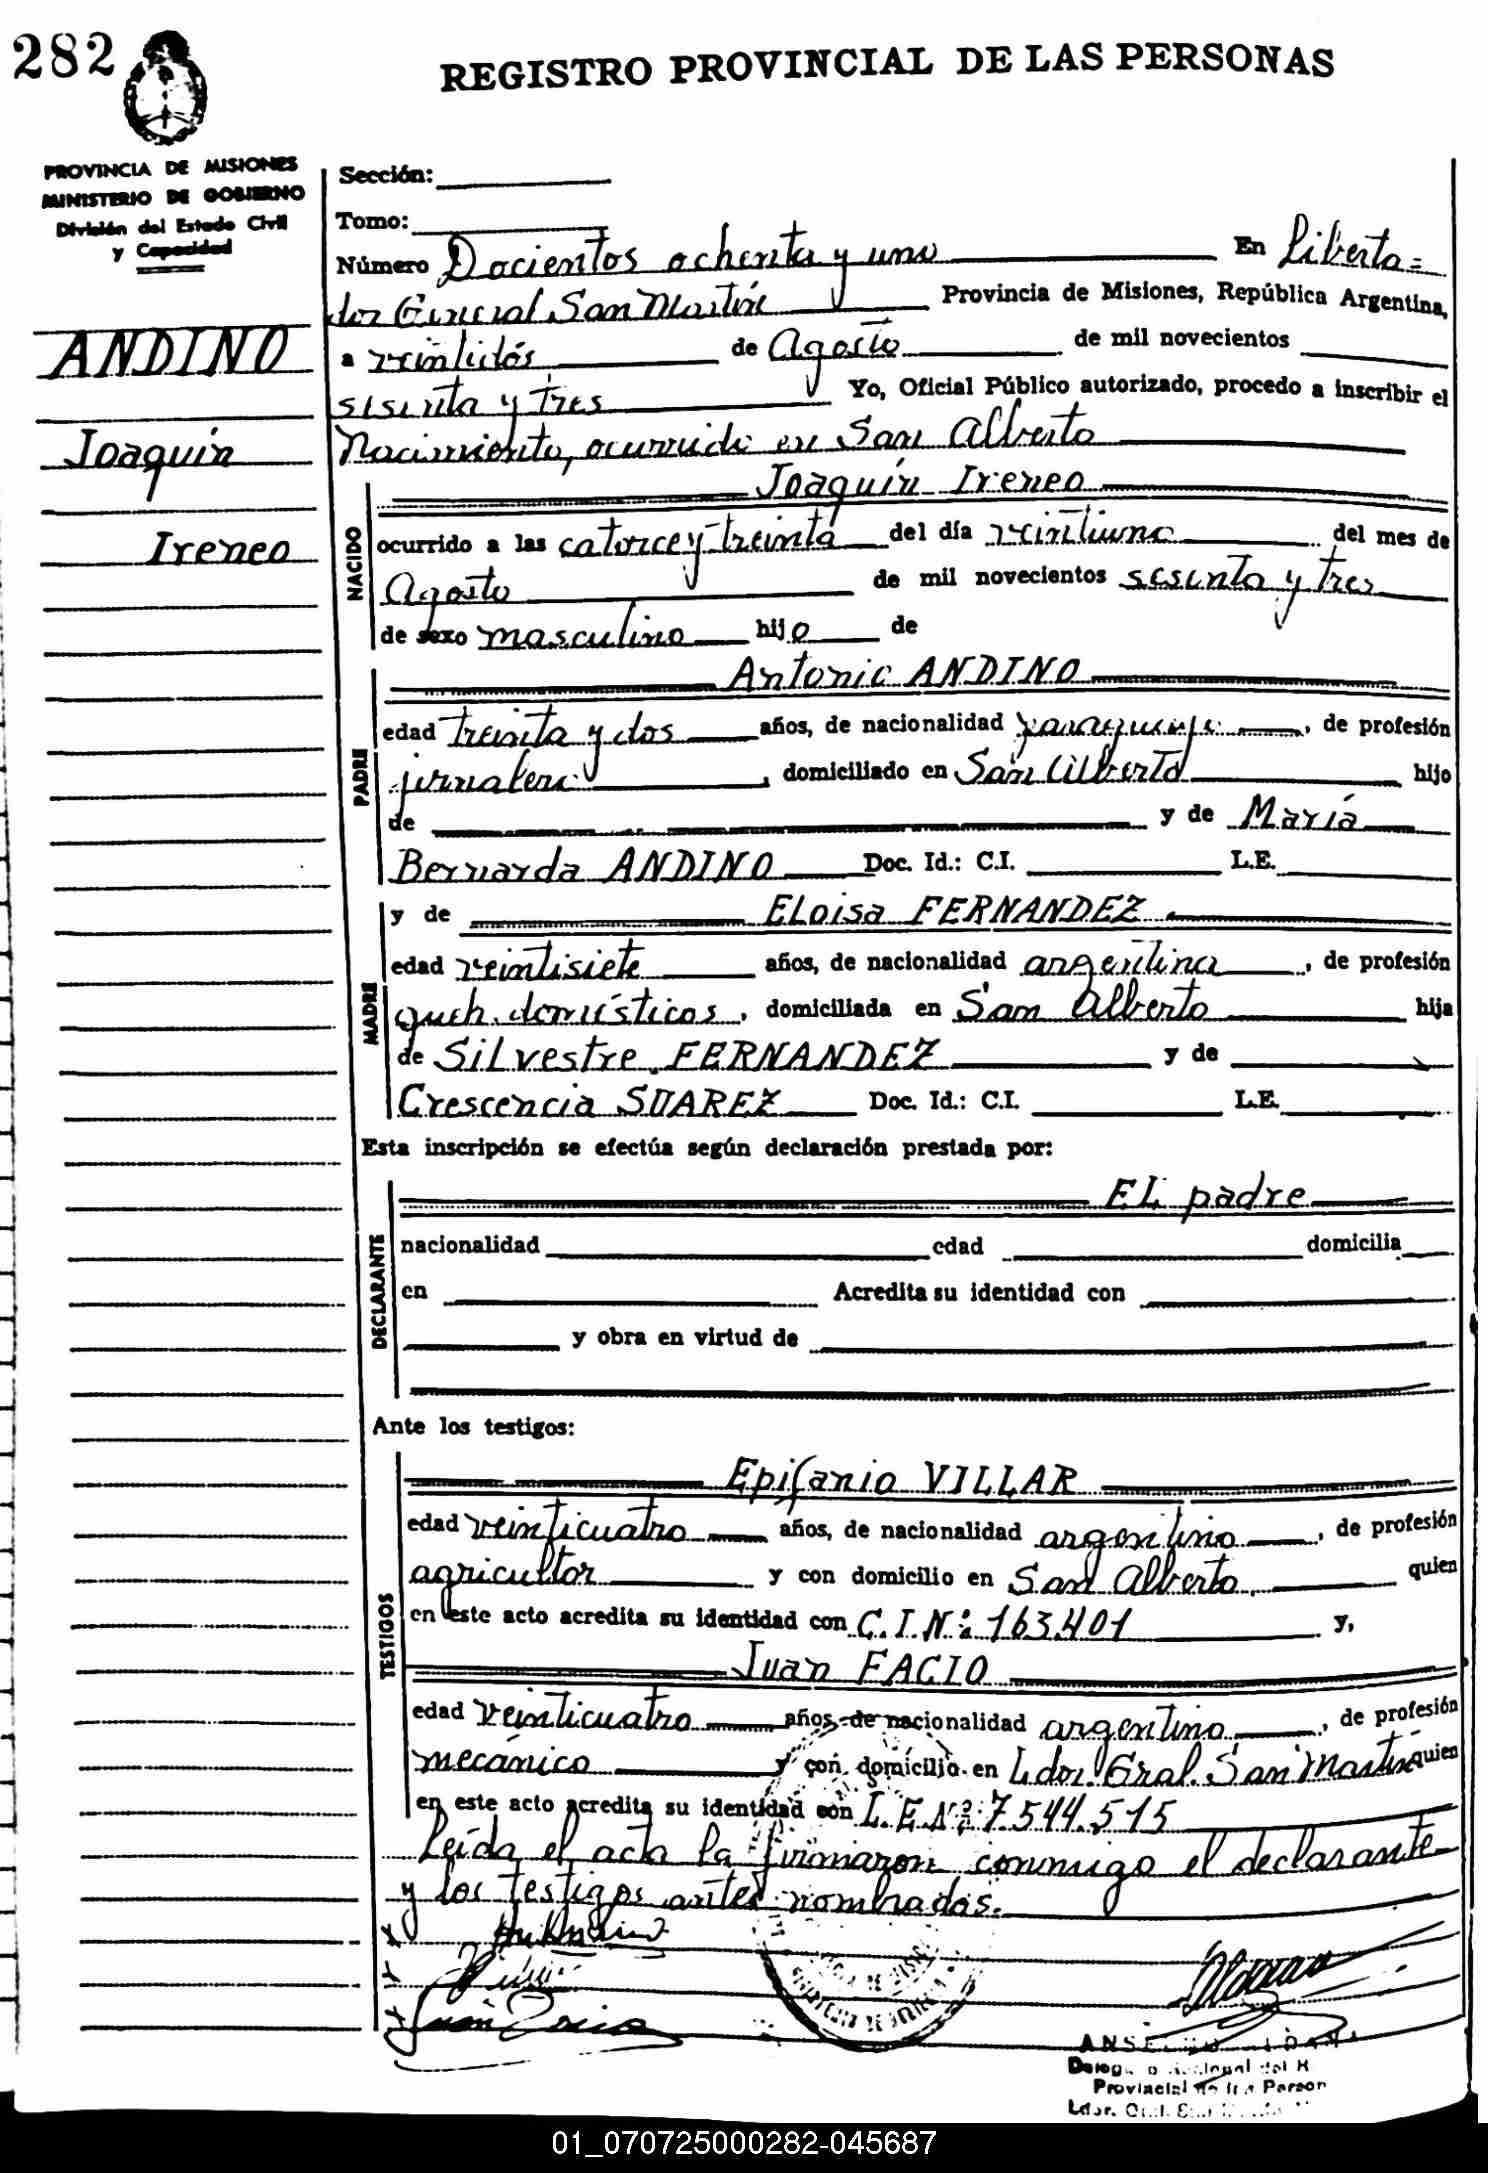 282
REGISTRO PROVINCIAL DE LAS PERSONAS
PROVINCIA DE MISIONES
MINISTERIO DE GOBIERNO
División del Estado Civil
y Capacidad
ANDINO
Joaquín
Ireneo
Sección:
Tomo:
Número Docientos ochenta y uno En Liberta=
dor General San Martín Provincia de Misiones, República Argentina,
a veintidós de Agosto de mil novecientos
sesenta y tres Yo, Oficial Público autorizado, procedo a inscribir el
Nacimiento, ocurrido en San Alberto
NACIDO
Joaquín Ireneo
ocurrido a las catorce y treinta del día veintiuno del mes de
Agosto de mil novecientos sesenta y tres
de sexo masculino hijo de
PADRE
Antonio ANDINO
edad treinta y dos años, de nacionalidad paraguayo, de profesión
jornalero, domiciliado en San Alberto hijo
de y de María
Bernarda ANDINO Doc. Id.: C.I. L.E.
MADRE
y de ELoisa FERNANDEZ
edad veintisiete años, de nacionalidad argentina, de profesión
queh. domésticos, domiciliada en San Alberto hija
de SiLvestre FERNANDEZ y de
Crescencia SUAREZ Doc. Id.: C.I. L.E.
Esta inscripción se efectúa según declaración prestada por:
DECLARANTE
EL padre
nacionalidad edad domicilia
en Acredita su identidad con
y obra en virtud de
Ante los testigos:
TESTIGOS
Epifanio VILLAR
edad veinticuatro años, de nacionalidad argentino, de profesión
agricultor y con domicilio en San Alberto, quien
en este acto acredita su identidad con C.I.Nº: 163.401 y,
Juan FACIO
edad veinticuatro años, de nacionalidad argentino, de profesión
mecánico y con domicilio en Ldor. Gral. San Martín quien
en este acto acredita su identidad con L.E.Nº: 7.544.515
Leída el acta la firmaron conmigo el declarante
y los testigos antes nombrados.
Provincial de las Person
01_070725000282-045687